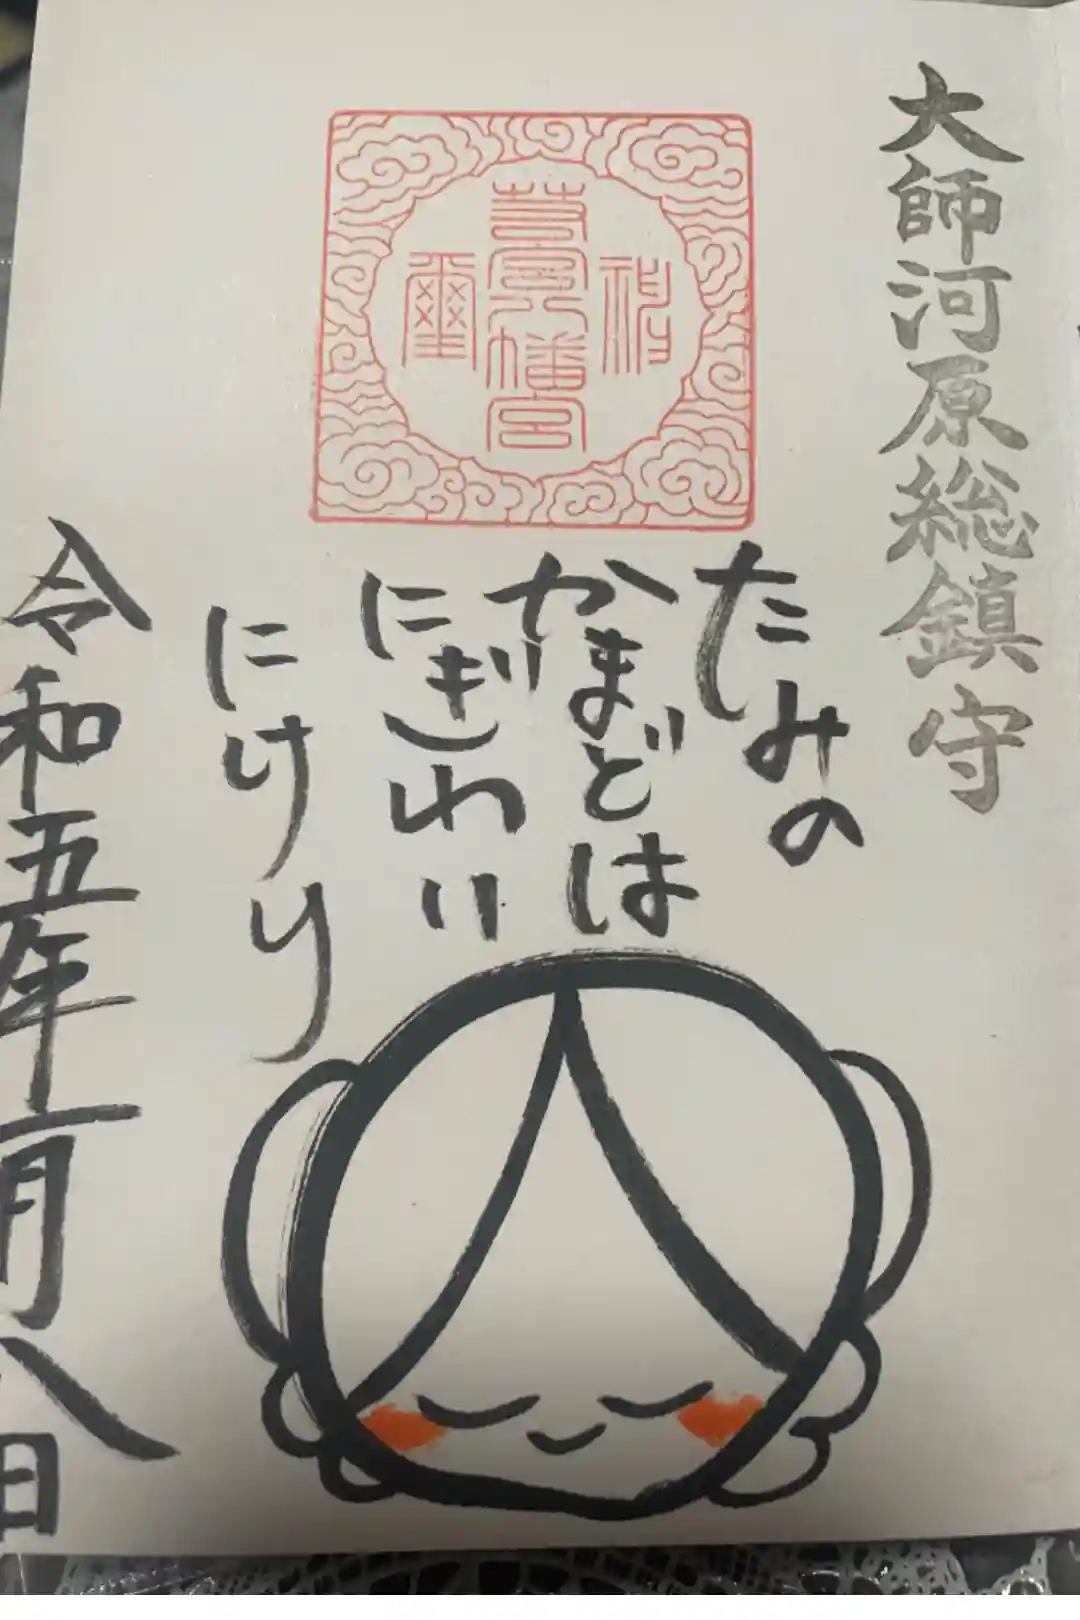 大師河原総鎮守
神
若宮八幡宮
璽
たみの
かまどは
にぎわい
にけり
令和五年一月八日